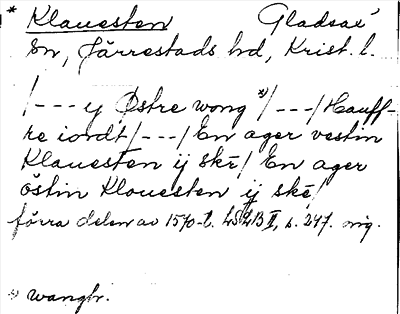 * Klauesten Gladsax'
Sn, Järrestads hd, Krist. l.
/--- ij Østre wong *)/---/ Hauff-
re iordt /---/ En ager vestin
Klauesten ij skē/ En ager
östin Klouesten ij skē/
förra delen av 1570-t. LSAB II, s. 247. mig.
*) wangbr.